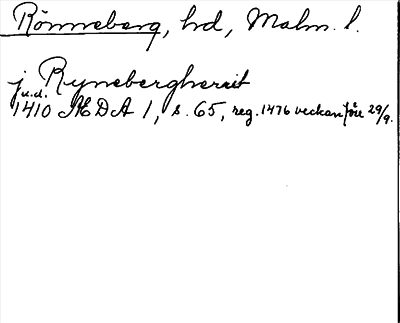 Rönneberg, hd, Malm. l.
j Rynebergherrit
u.d.
1410 ÆDA 1, s. 65, reg. 1476 veckan före 29/9.